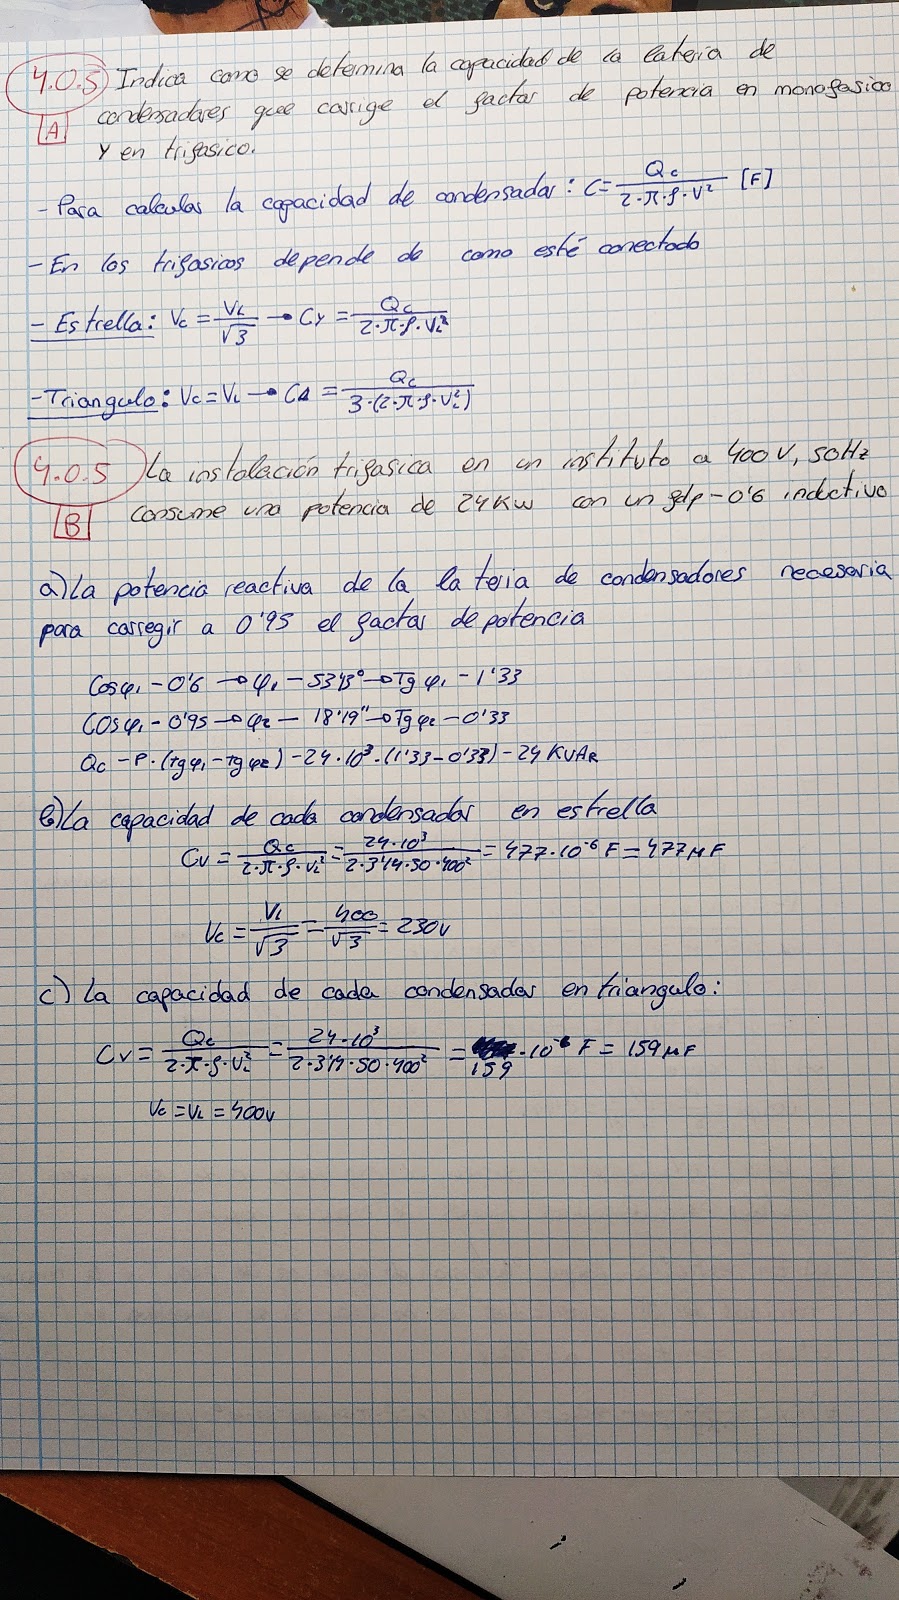 4.0.5 Indica como se determina la capacidad de la bateria de
A condensadores que corrige el factor de potencia en monofasico
y en trifasico.
- Para calcular la capacidad de condensador: C = Qc / 2·π·f·V² [F]
- En los trifasicos depende de como esté conectado
- Estrella: Vc = VL / √3 → CY = Qc / 2·π·f·VL²
- Triangulo: Vc = VL → CΔ = Qc / 3·(2·π·f·VL²)
4.0.5 La instalación trifasica en un instituto a 400V, 50Hz
B consume una potencia de 24KW con un fdp - 0'6 inductivo
a) La potencia reactiva de la bateria de condensadores necesaria
para corregir a 0'95 el factor de potencia
Cosφ1 - 0'6 → φ1 - 53'13° → Tg φ1 - 1'33
COSφ1 - 0'95 → φ2 - 18'19" → Tg φ2 - 0'33
Qc - P · (Tg φ1 - Tg φ2) - 24·10³ · (1'33 - 0'33) - 24 KVAR
b) La capacidad de cada condensador en estrella
CV = Qc / 2·π·f·VL² = 24·10³ / 2·3'14·50·400² = 477·10⁻⁶ F = 477 μF
Vc = VL / √3 = 400 / √3 = 230V
c) La capacidad de cada condensador en triangulo:
CV = Qc / 2·π·f·VL² = 24·10³ / 2·3'14·50·400² = 159 ·10⁻⁶ F = 159 μF
Vc = VL = 400V